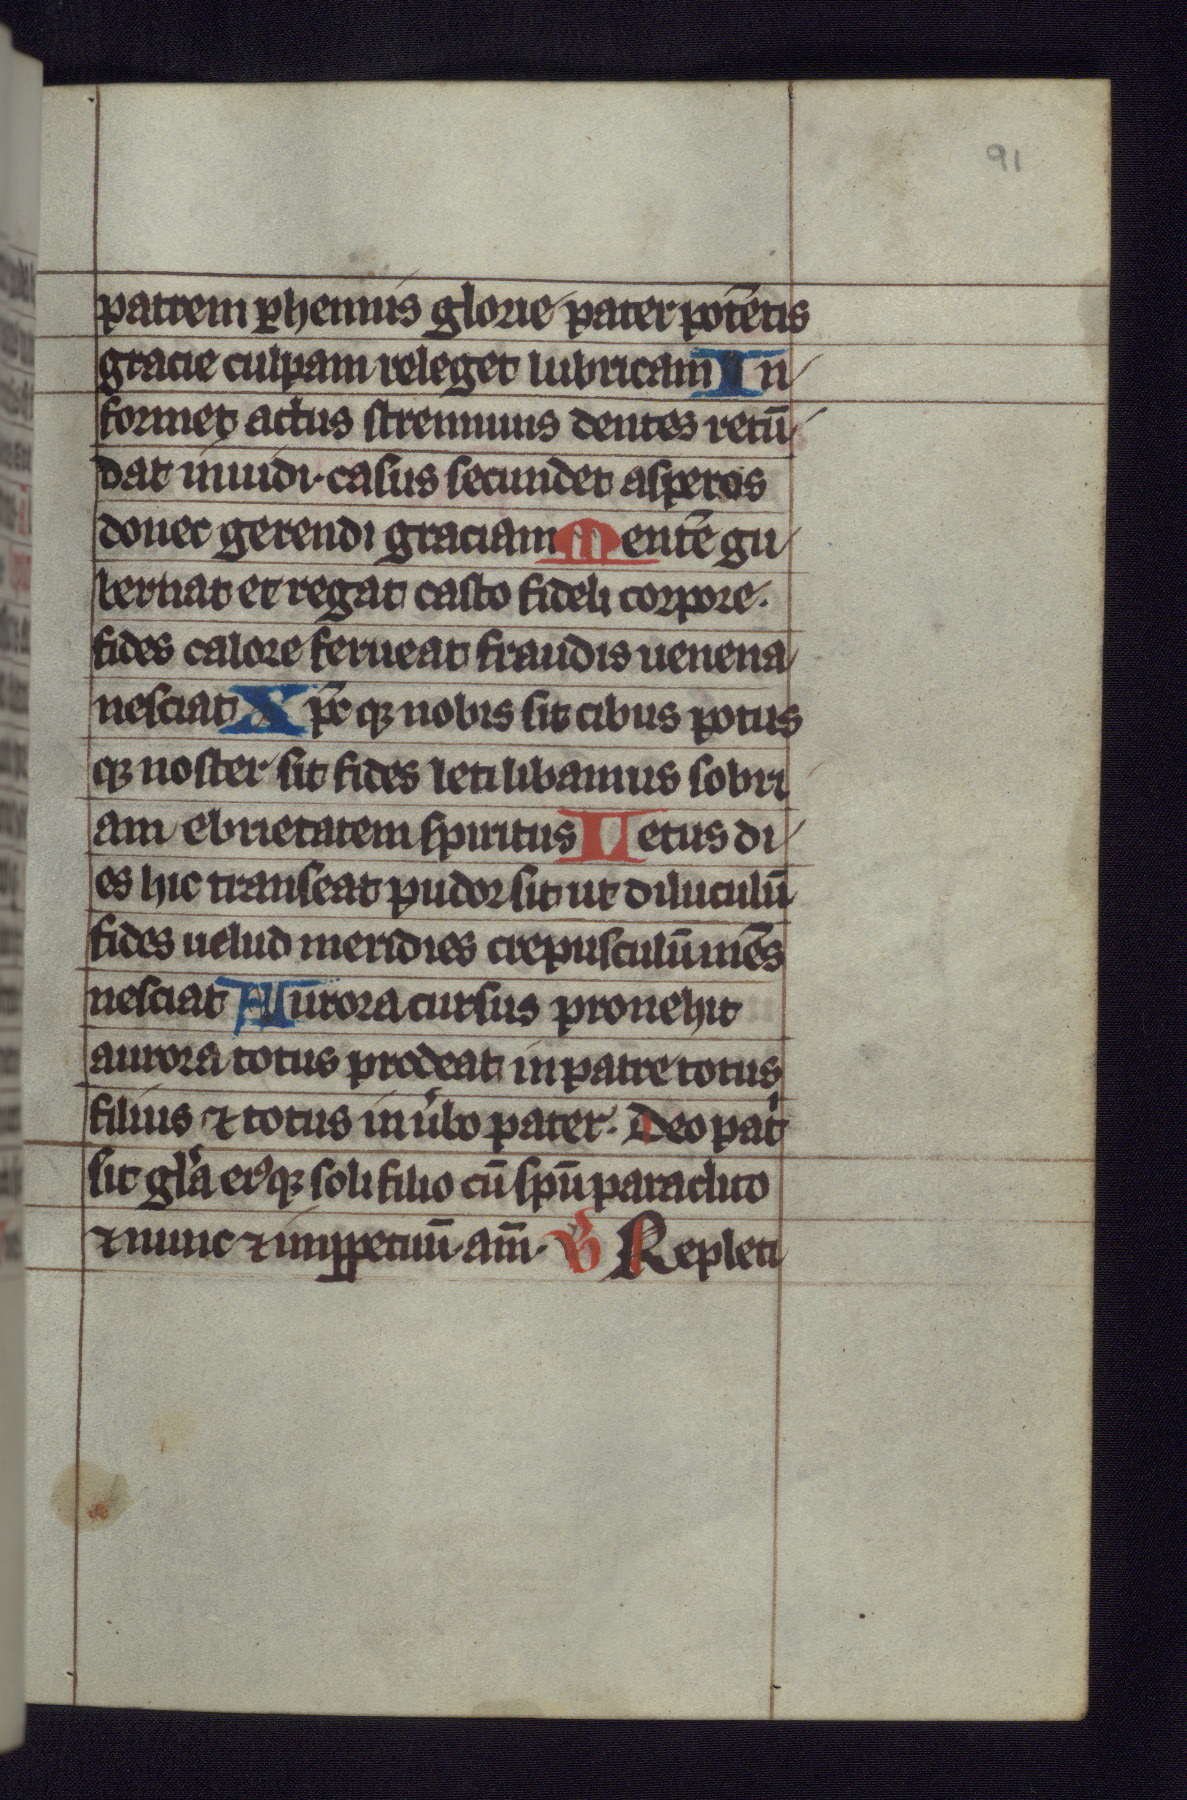 91
patrem ꝑhennis glorie pater potētis
gracie culpam releget lubricam In
formet actus strennuus dentes retū
dat inuidi casus secundet asperos
donet gerendi graciam Mentē gu
bernat et regat casto fideli corpore.
fides calore ferueat fraudis uenena
nesciat Xp̄c qꝫ nobis sit cibus potus
qꝫ noster sit fides leti libamus sobri
am ebrietatem spiritus Letus di
es hic transeat pudor sit ut diluculū
fides uelud meridies crepusculū mēs
nesciat Aurora cursus prouehit
aurora totus prodeat in patre totus
filius ⁊ totus in ůbo pater. Deo pat̾
sit gl̾a ei9qꝫ soli filio cū spū paraclito
⁊ nunc ⁊ inꝑpetuū. am̄. V̾ Repleti